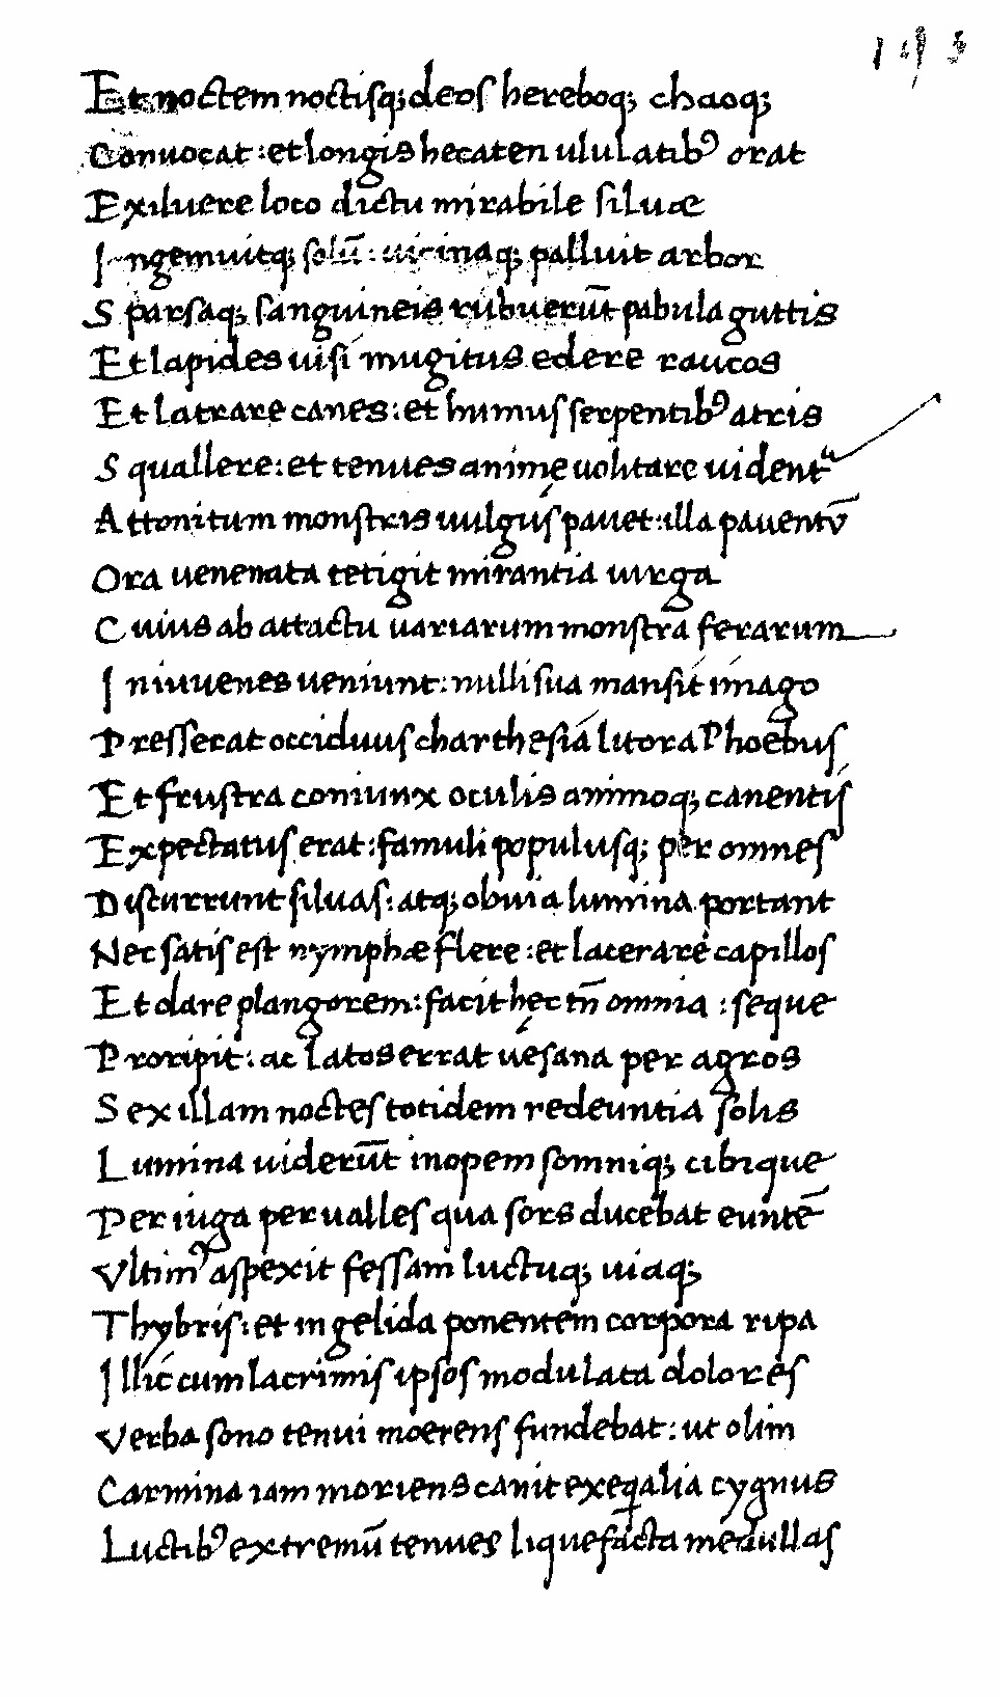 193
Et noctem noctisq; deos hereboq; chaoq;
Conuocat: et longis hecaten ululatibꝰ orat
Exiluere loco dictu mirabile siluæ
Ingemuitq; solū: uicinaq; palluit arbor
Sparsaq; sanguineis rubuerūt pabula guttis
Et lapides uisi mugitus edere raucos
Et latrare canes: et humus serpentibꝰ atris
Squallere: et tenues animę uolitare uidentᵃ
Attonitum monstris uulgus pauet: illa pauentū
Ora uenenata tetigit mirantia uirga
Cuius ab attactu uariarum monstra ferarum
In iuuenes ueniunt: nulli sua mansit imago
Presserat occiduus charthesia litora Phoebus
Et frustra coniunx oculis animoq; canentis
Expectatus erat: famuli populusq; per omnes
Discurrunt siluas: atq; obuia lumina portant
Nec satis est nymphæ flere: et lacerare capillos
Et dare plangorem: facit hęc tn̄ omnia: seque
Proripit: ac latos errat uęsana per agros
Sex illam noctes totidem redeuntia solis
Lumina uiderūt inopem somniq; cibique
Per iuga per ualles qua sors ducebat euntē
Vltimꝰ aspexit fessam luctuq; uiaq;
Thybris: et in gelida ponentem corpora ripa
Illic cum lacrimis ipsos modulata dolores
Verba sono tenui moerens fundebat: ut olim
Carmina iam moriens canit exeqalia cygnus
Luctibꝰ extremū tenues liquefacta medullas